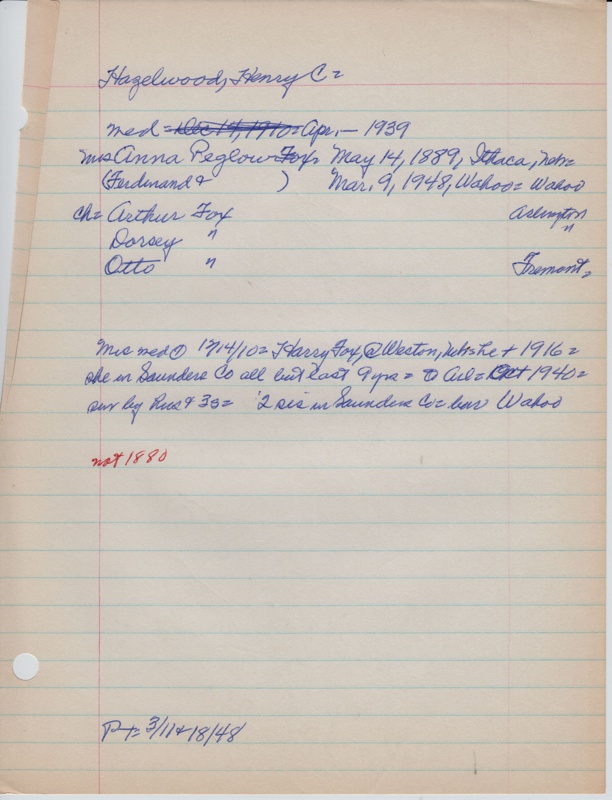 Hazelwood, Henry C =
med = Dec 14, 1910 = Apr. — 1939
Mrs Anna Peglow Fox = May 14, 1889, Ithaca, Neb =
(Ferdinand & ) Mar. 9, 1948, Wahoo = Wahoo
Ch = Arthur Fox Arlington
Dorsey " "
Otto " Fremont =
Mrs med ① 12/14/10 = Harry Fox, @ Weston, Neb = he + 1916 =
she in Saunders Co all but last 9 yrs = to Arl = 1940 =
sur by Hus & 3s = 2 sis in Saunders Co = bur Wahoo
not 1880
P-T = 3/11 & 18/48